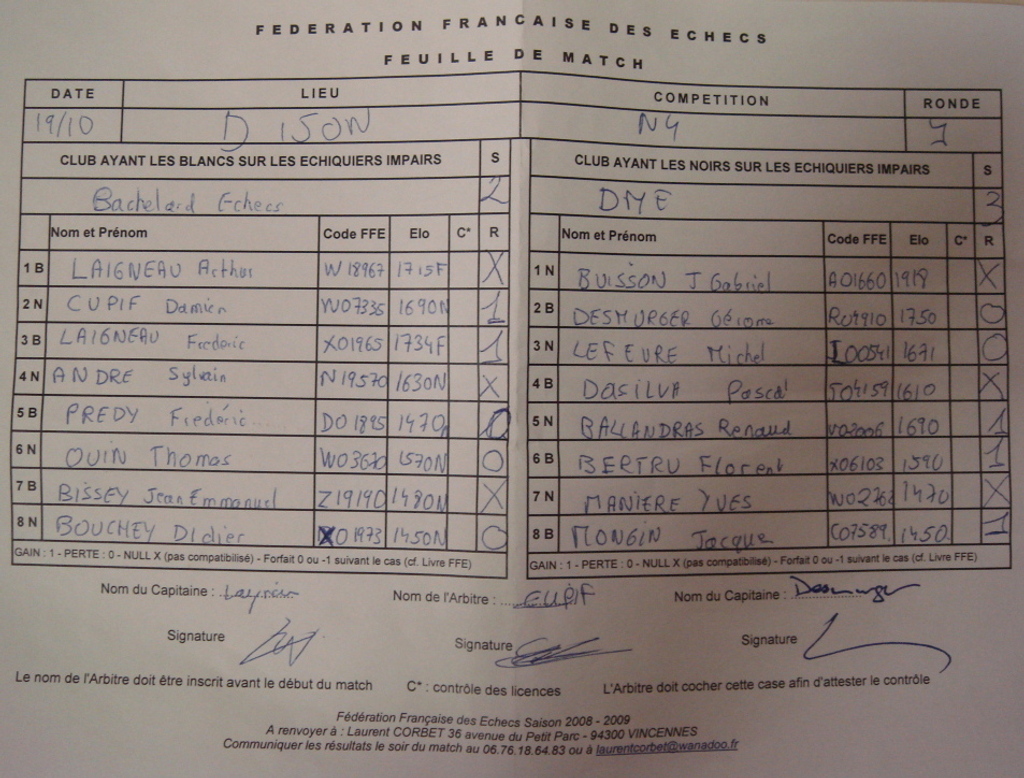 FEDERATION FRANCAISE DES ECHECS
FEUILLE DE MATCH
DATE LIEU COMPETITION RONDE
19/10 DIJON N4 1
CLUB AYANT LES BLANCS SUR LES ECHIQUIERS IMPAIRS S CLUB AYANT LES NOIRS SUR LES ECHIQUIERS IMPAIRS S
Bachelard Echecs 2 DME 3
Nom et Prénom Code FFE Elo C* R Nom et Prénom Code FFE Elo C* R
1 B LAIGNEAU Arthur W18967 1715F X 1 N BUISSON J Gabriel A01660 1918 X
2 N CUPIF Damien W07336 1690N 1 2 B DESMURGER Gérome R04910 1750 0
3 B LAIGNEAU Frederic X01965 1734F 1 3 N LEFEVRE Michel I00541 1671 0
4 N ANDRE Sylvain N19570 1630N X 4 B DASILVA Pascal S04159 1610 X
5 B PREDY Fréderic D01895 1470 0 5 N BALLANDRAS Renaud 1690 1
6 N OUIN Thomas W03670 1570N 0 6 B BERTRU Florent X06103 1590 1
7 B BISSEY Jean Emmanuel Z19190 1480N X 7 N MANIERE YVES W02762 1470 X
8 N BOUCHEY Didier X01973 1450N 0 8 B MONGIN Jacque C07589 1450 1
GAIN : 1 - PERTE : 0 - NULL X (pas compatibilisé) - Forfait 0 ou -1 suivant le cas (cf. Livre FFE) GAIN : 1 - PERTE : 0 - NULL X (pas compatibilisé) - Forfait 0 ou -1 suivant le cas (cf. Livre FFE)
Nom du Capitaine : Nom de l'Arbitre : CUPIF Nom du Capitaine : Desmurger
Signature Signature Signature
Le nom de l'Arbitre doit être inscrit avant le début du match C* : contrôle des licences L'Arbitre doit cocher cette case afin d'attester le contrôle
Fédération Française des Echecs Saison 2008 - 2009
A renvoyer à : Laurent CORBET 36 avenue du Petit Parc - 94300 VINCENNES
Communiquer les résultats le soir du match au 06.76.18.64.83 ou à laurentcorbet@wanadoo.fr